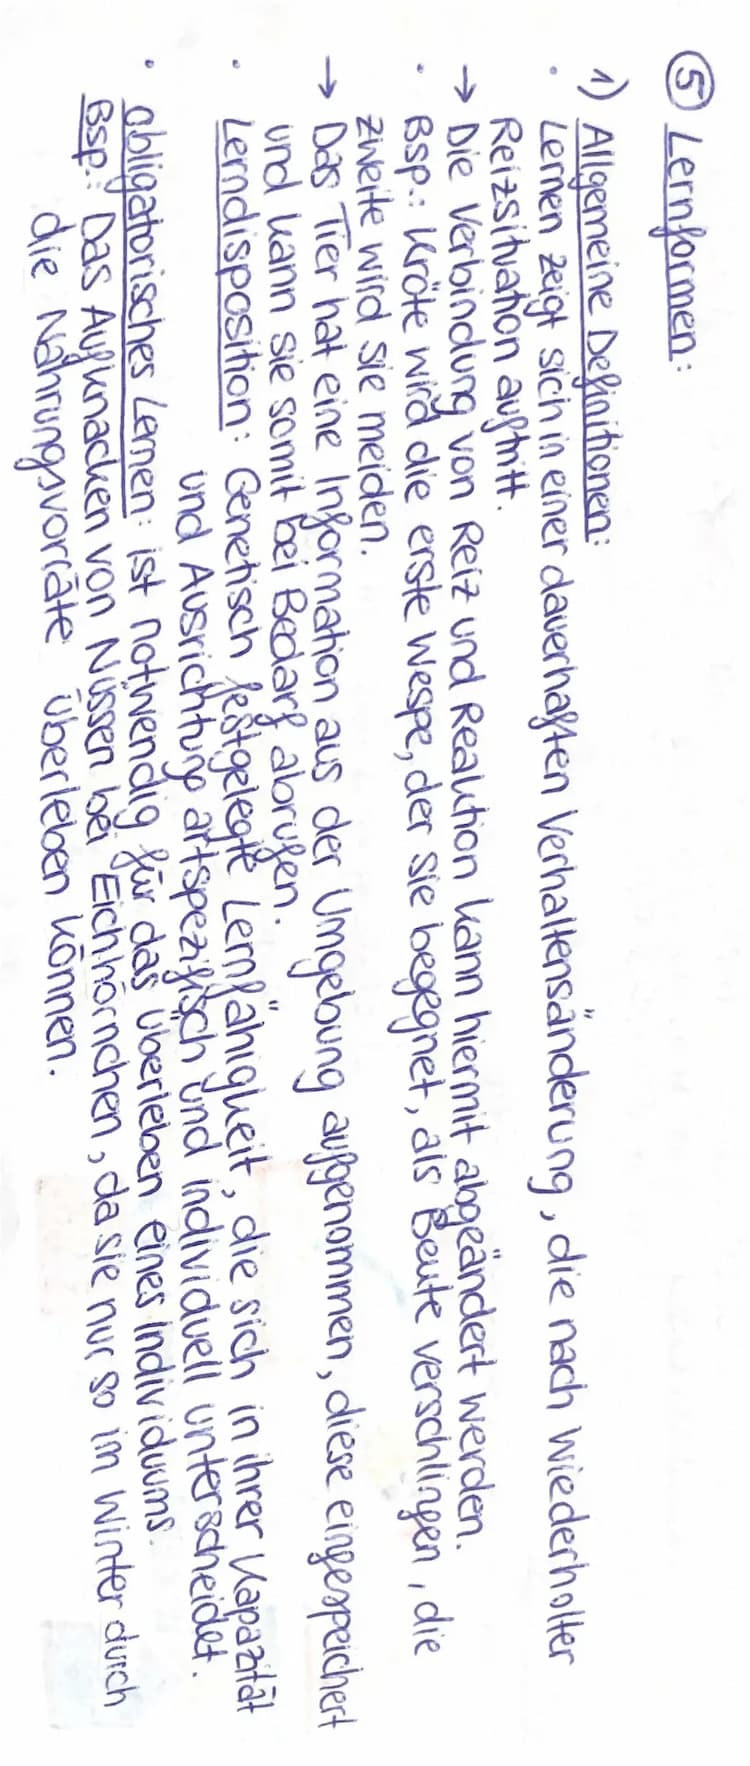 ⑤ Lernformen:
1) Allgemeine Definitionen:
• Lernen zeigt sich in einer dauerhaften Verhaltensänderung, die nach wiederholter
Reizsituation auftritt.
→ Die Verbindung von Reiz und Reaktion kann hiermit abgeändert werden.
• Bsp.: Kröte wird die erste Wespe, der sie begegnet, als Beute verschlingen, die
zweite wird sie meiden.
→ Das Tier hat eine Information aus der Umgebung aufgenommen, diese eingespeichert
und kann sie somit bei Bedarf abrufen.
• Lerndisposition: Genetisch festgelegte Lernfähigkeit, die sich in ihrer Kapazität
und Ausrichtung artspezifisch und individuell unterscheidet.
• obligatorisches Lernen: ist notwendig für das Überleben eines Individuums.
Bsp.: Das Aufknacken von Nüssen bei Eichhörnchen, da sie nur so im Winter durch
die Nahrungsvorräte überleben können.